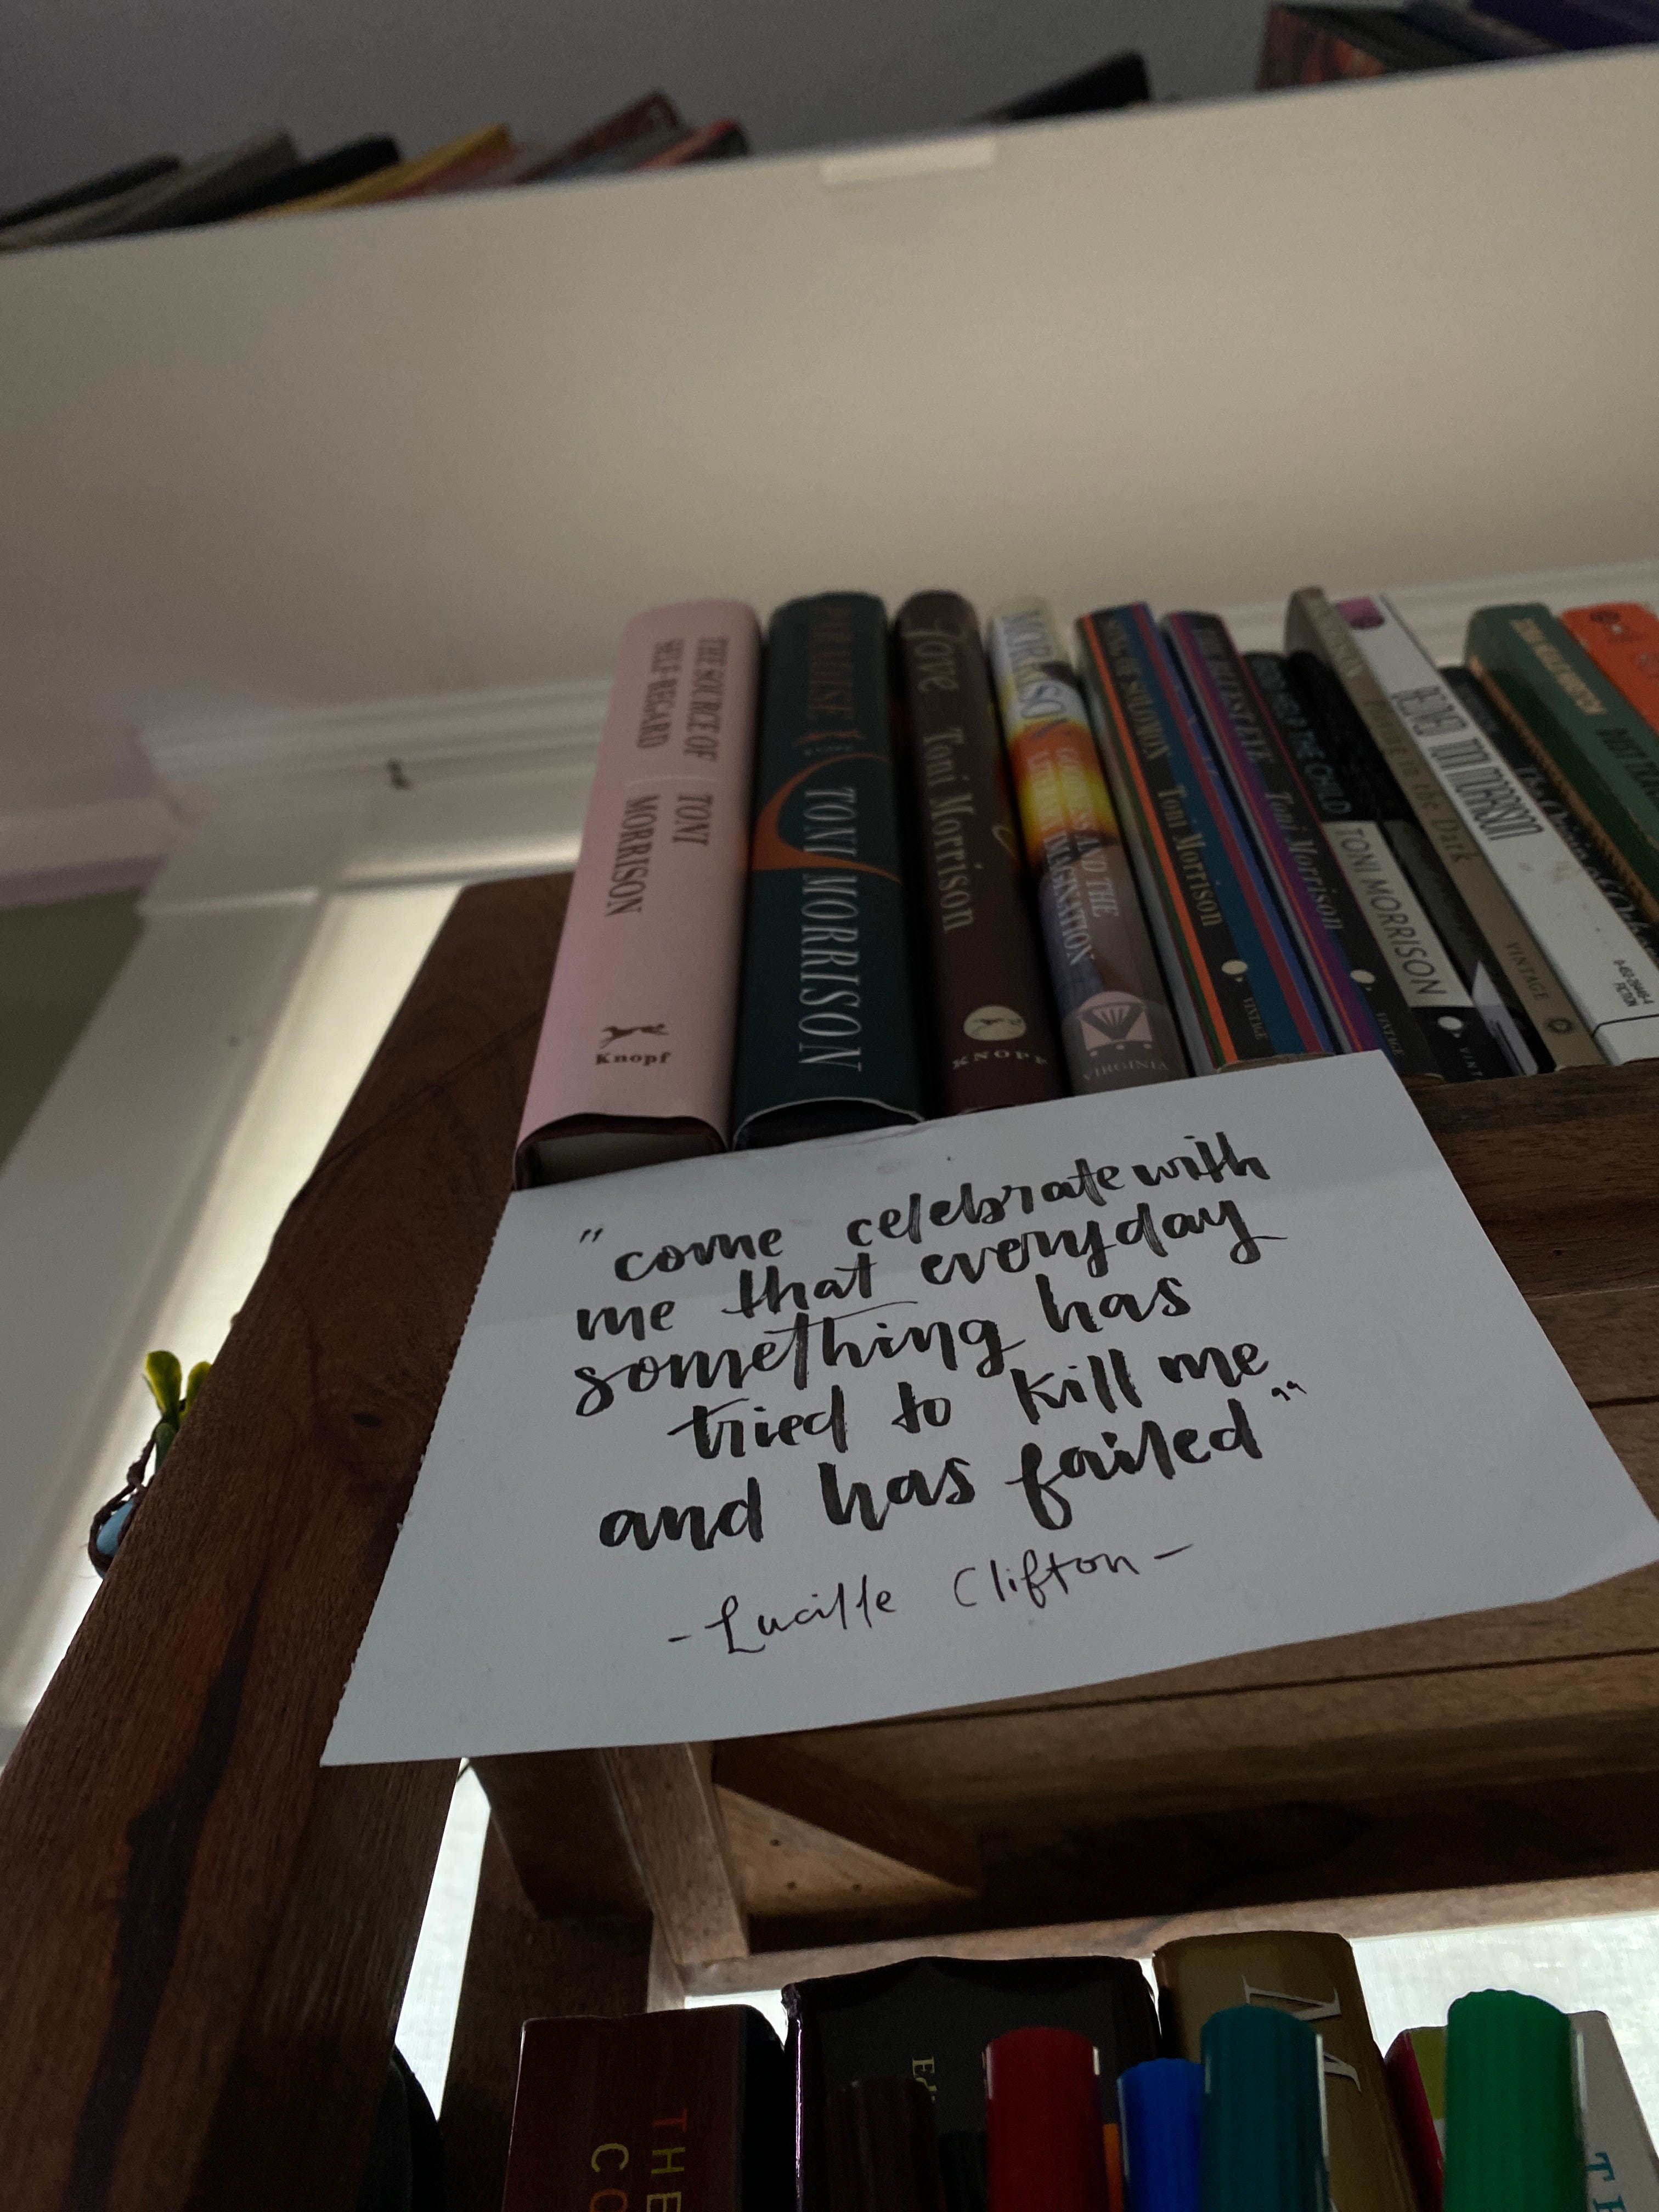 THE SOURCE OF
SELF-REGARD
TONI
MORRISON
Knopf
PARADISE
TONI MORRISON
Love Toni Morrison
KNOPF
MORRISON
AND THE
IMAGINATION
VIRGINIA
SONG OF SOLOMON Toni Morrison
VINTAGE
THE BLUEST EYE Toni Morrison
VINTAGE
THE CHILD TONI MORRISON
in the Dark
VINTAGE
TONI MORRISON
FICTION
The Origin of Others
"come celebrate with
me that everyday
something has
tried to kill me
and has failed"
- Lucille Clifton -
THE